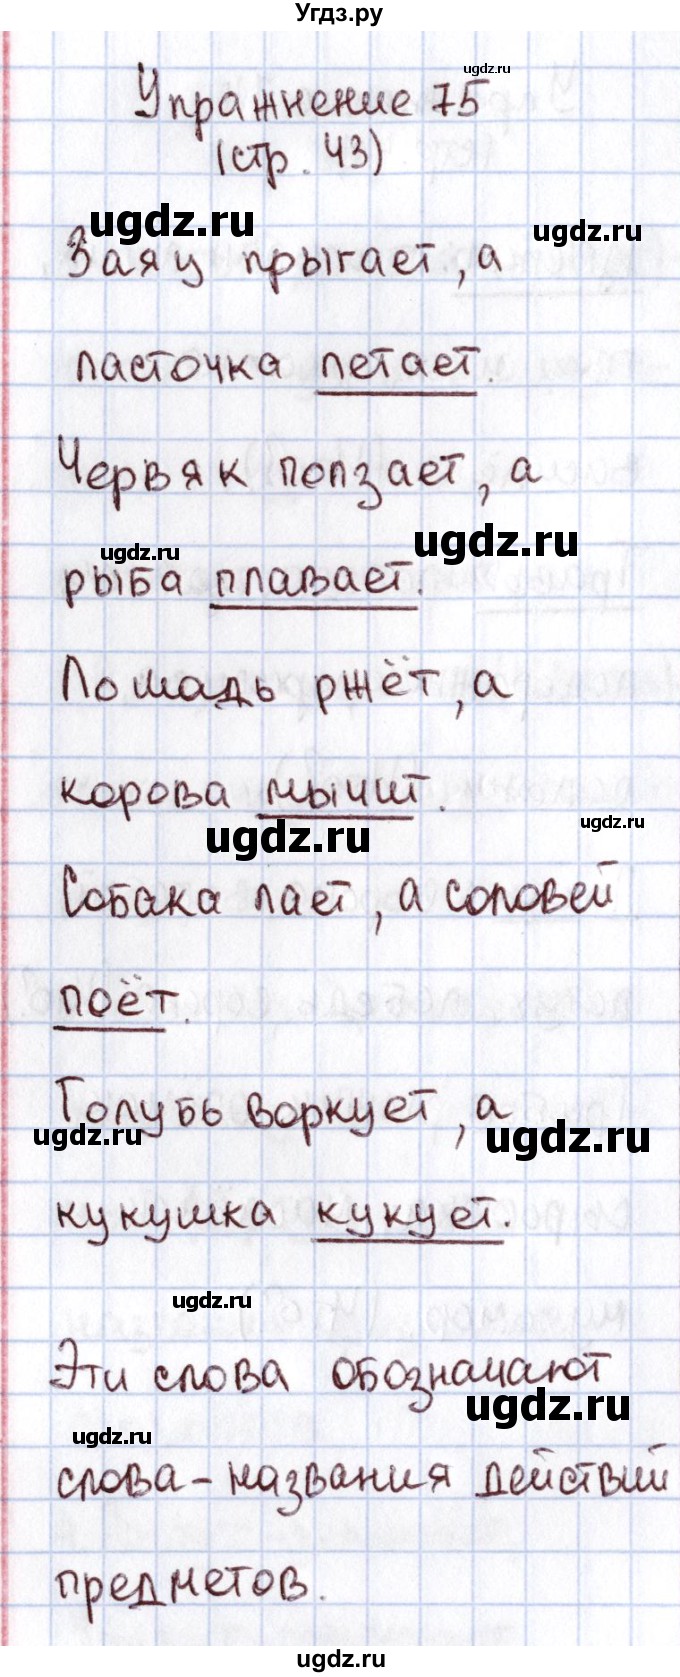 Угдз.ру
ugdz.ru
Упражнение 75
(стр. 43)
ugdz.ru
ugdz.ru
Заяц прыгает, а
ласточка летает.
Червяк ползает, а
ugdz.ru
ugdz.ru
рыба плавает.
Лошадь ржёт, а
корова мычит.
ugdz.ru
ugdz.ru
Собака лает, а соловей
поёт.
Голубь воркует, а
ugdz.ru
ugdz.ru
кукушка кукует.
ugdz.ru
Эти слова обозначают
ugdz.ru
ugdz.ru
слова-названия действий
предметов.
ugdz.ru